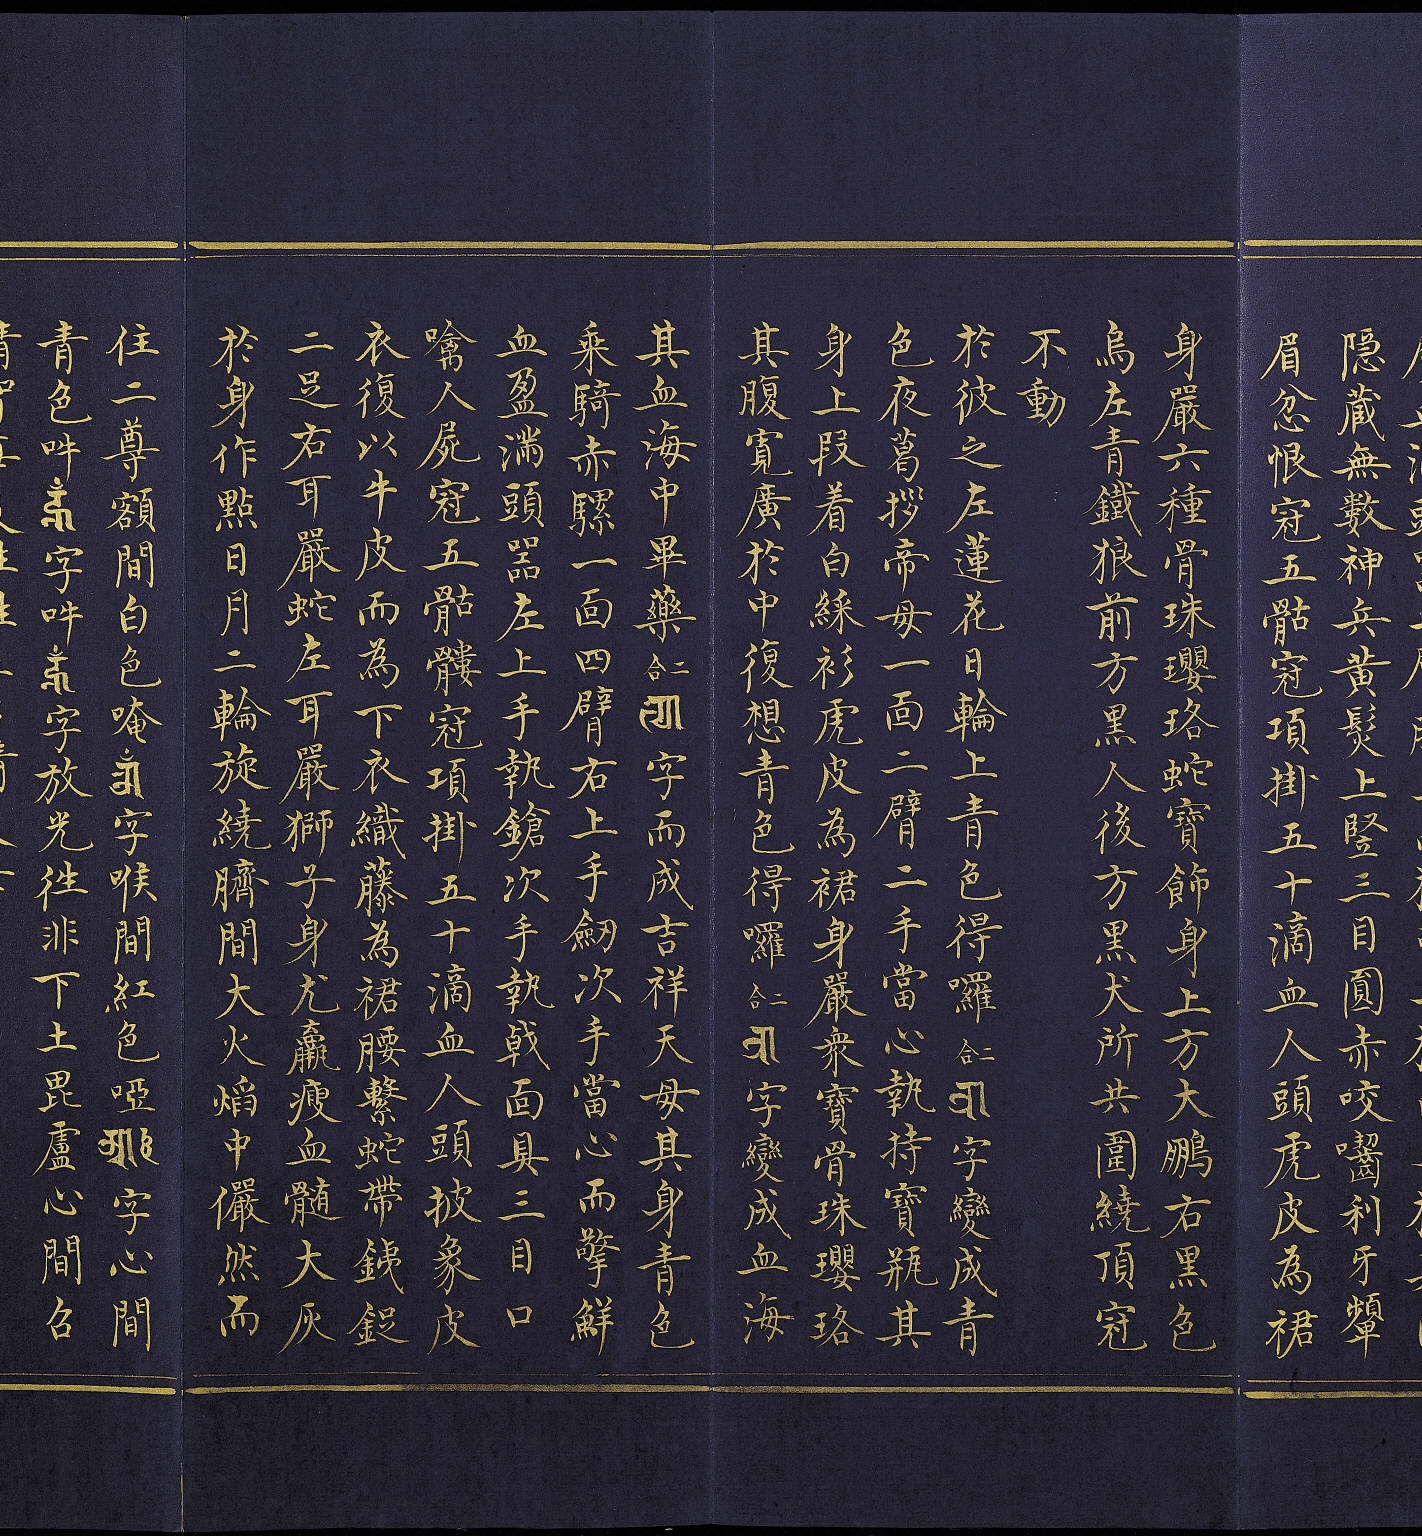 隐藏無數神兵黄髮上竪三目圓赤咬嚙利牙顰
眉忿恨冠五骷冠項掛五十滴血人頭虎皮為裙
身嚴六種骨珠瓔珞蛇寶飾身上方大鵬右黑色
烏左青鐵狼前方黑人後方黑犬所共圍繞頂冠
不動
於彼之左蓮花日輪上青色得囉二合字變成青
色夜葛拶帝母一面二臂二手當心執持寶瓶其
身上段着白綵衫虎皮為裙身嚴衆寶骨珠瓔珞
其腹寬廣於中復想青色得囉二合字變成血海
其血海中畢藥二合字而成吉祥天母其身青色
乘騎赤騾一面四臂右上手劒次手當心而擎鮮
血盈滿頭器左上手執鎗次手執戟面具三目口
噙人屍冠五骷髏冠項掛五十滴血人頭披象皮
衣復以牛皮而為下衣織藤為裙腰繫蛇帶銕鋜
二足右耳嚴蛇左耳嚴獅子身尤羸瘦血髄大灰
於身作點日月二輪旋繞臍間大火焰中儼然而
住二尊額間白色唵ༀ字喉間紅色啞字心間
青色吽字吽字放光徃非下土毘盧心間召